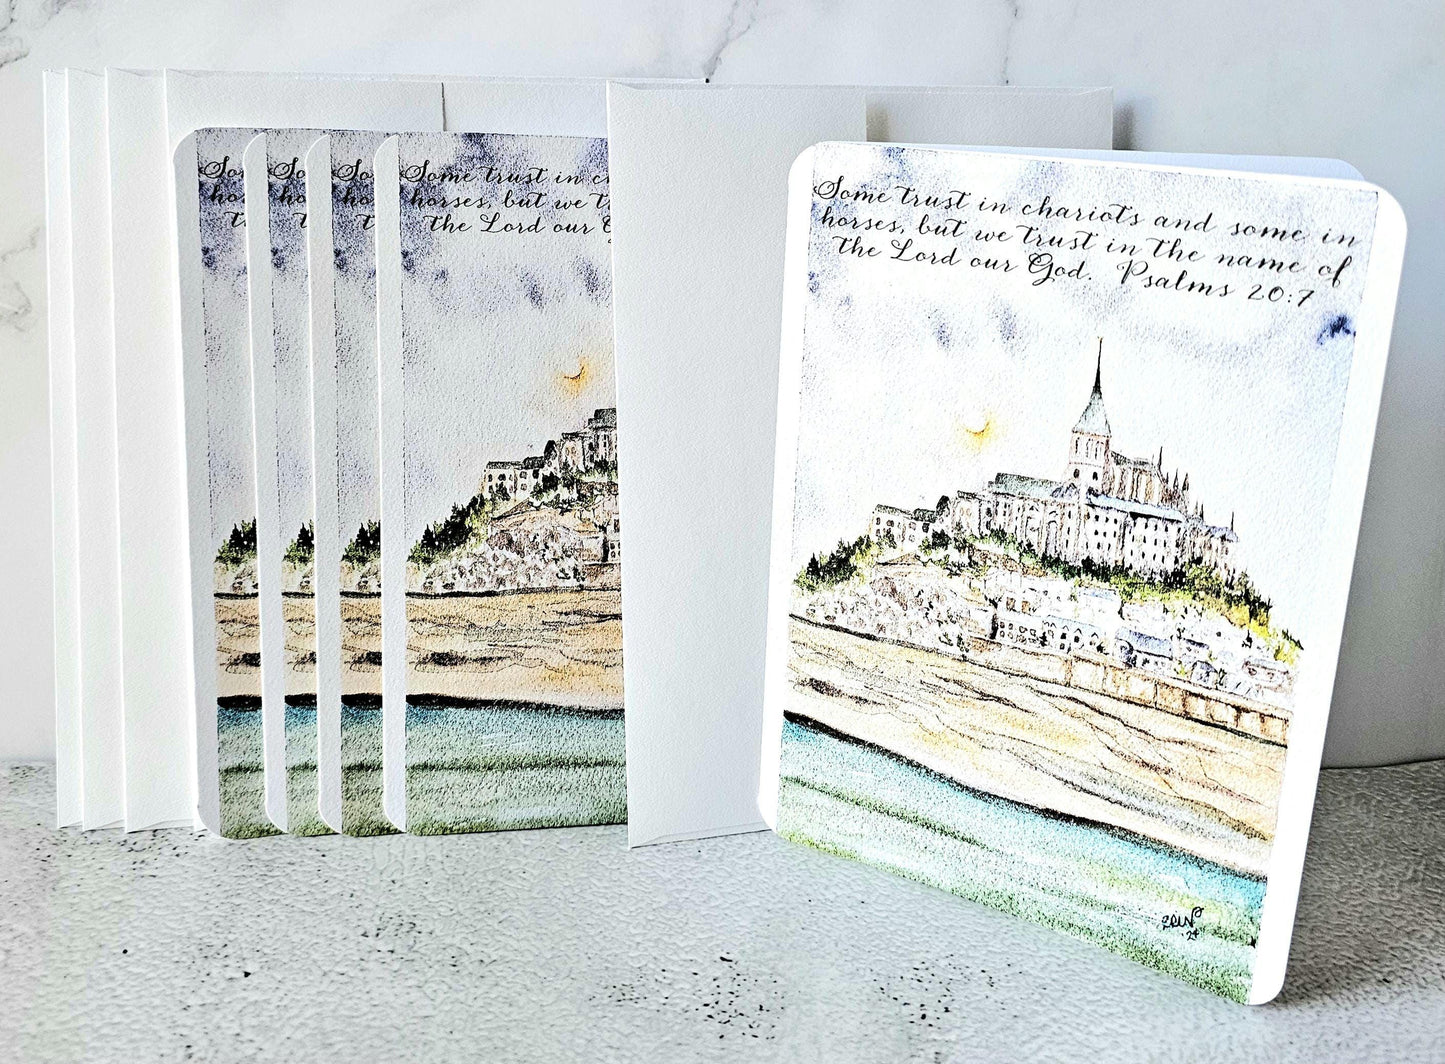 So
ho
t
So
ho
t
So
ho
t
Some trust in c
horses, but we t
the Lord our G
Some trust in chariots and some in
horses, but we trust in the name of
the Lord our God. Psalms 20:7
'24